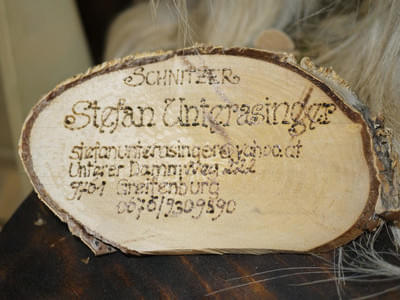 SCHNITZER
Stefan Unterasinger
stefanunterasinger@yahoo.at
Unterer Dammweg 222
9761 Greifenburg
0676/9309590